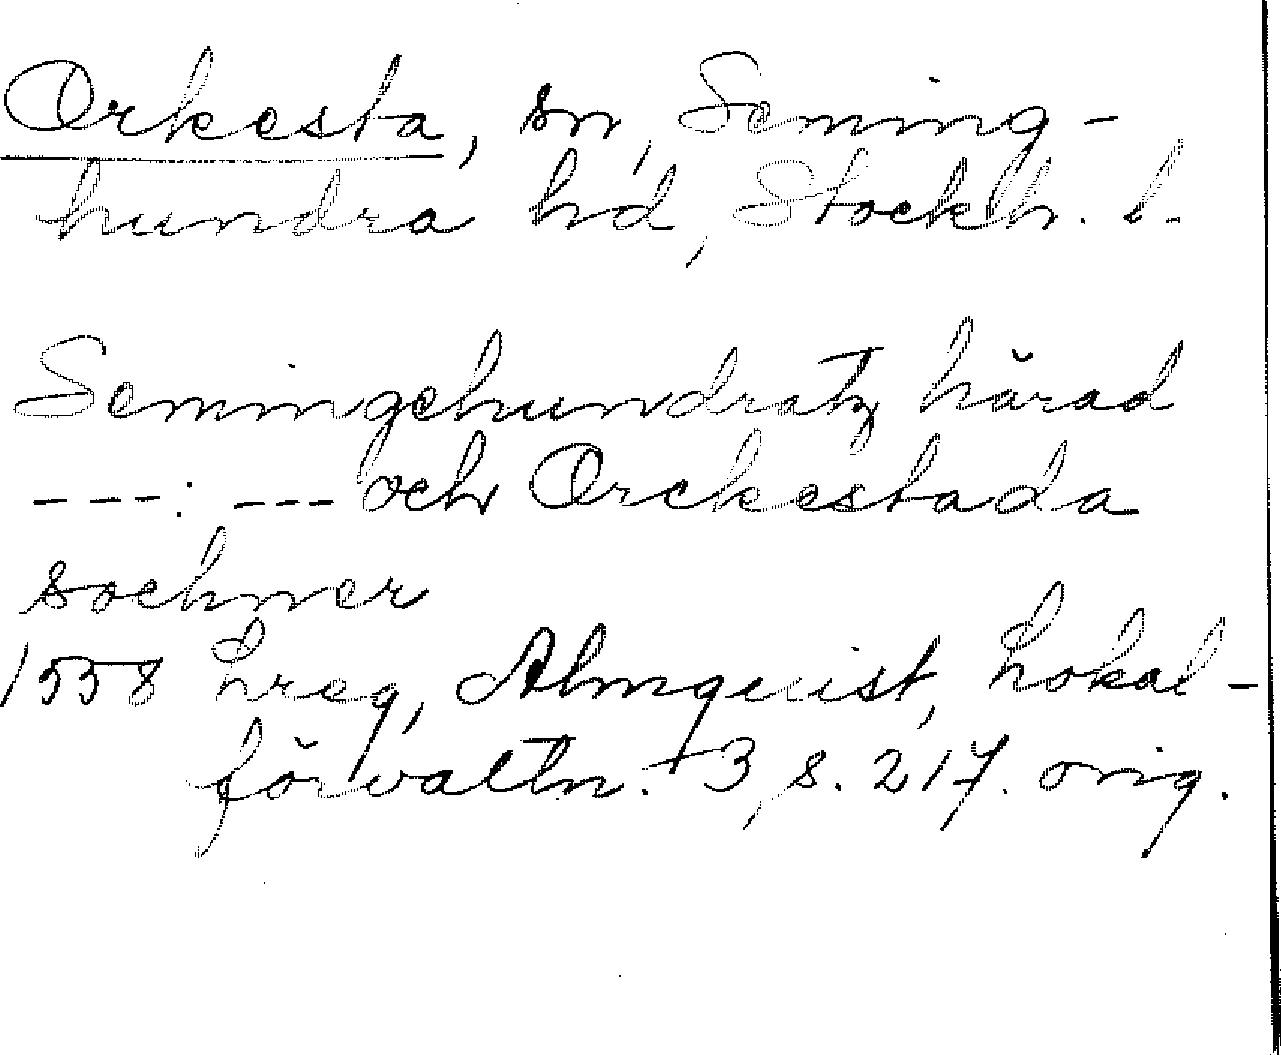 Orkesta, sn, Seming-
hundra hd, Stockh. l.
Semingehundratz härad
---: --- och Orckestada
sochner
1558 Lreg, Almquist, Lokal-
förvaltn. 3, s. 217. orig.